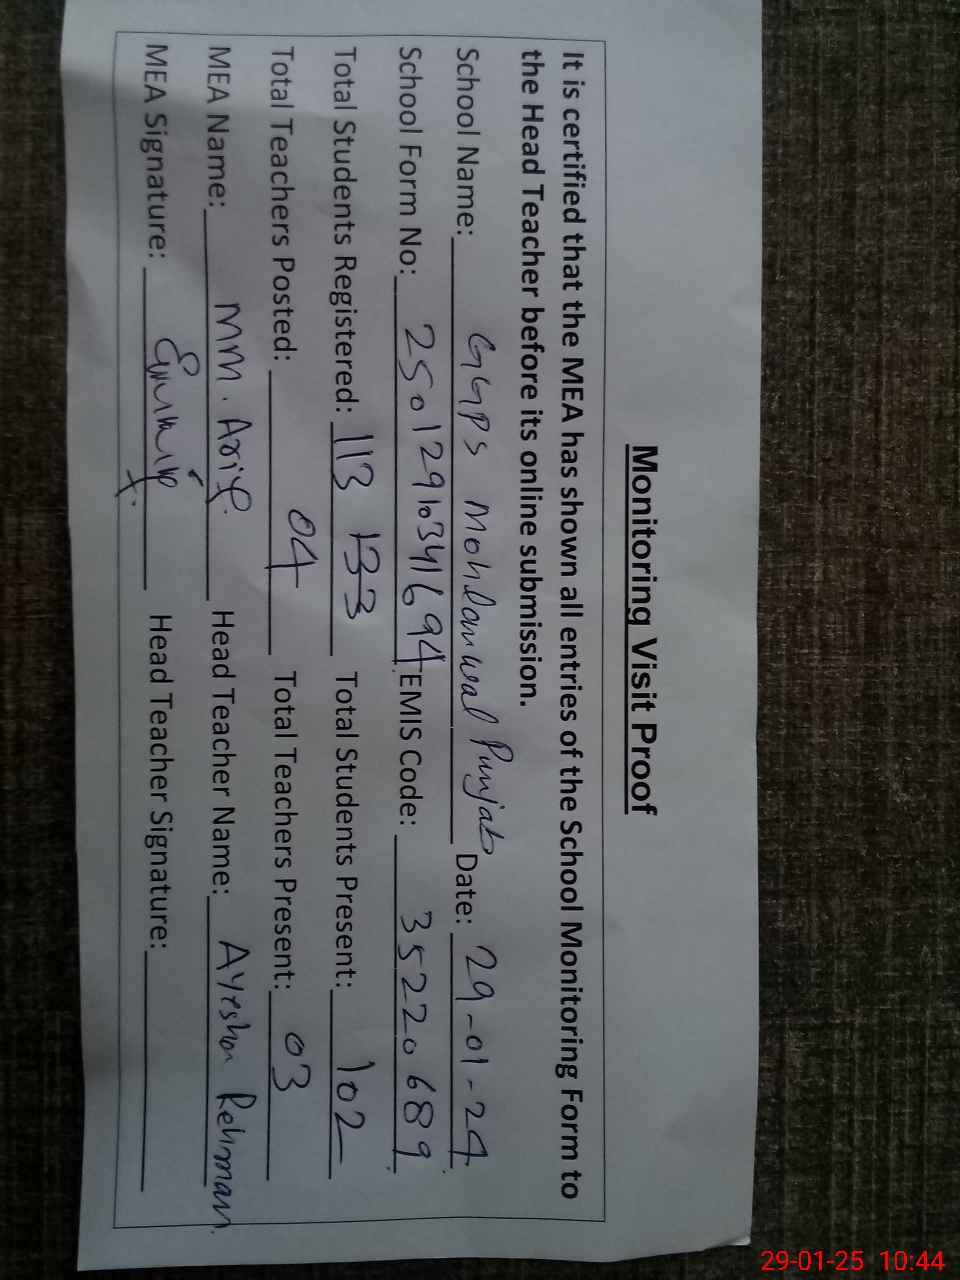 Monitoring Visit Proof
It is certified that the MEA has shown all entries of the School Monitoring Form to
the Head Teacher before its online submission.
School Name: GGPS Mohlanwal Punjab Date: 29-01-24
School Form No: 25012910341694 EMIS Code: 35220689
Total Students Registered: 113 133 Total Students Present: 102
Total Teachers Posted: 04 Total Teachers Present: 03
MEA Name: MM. Arif. Head Teacher Name: Ayesha Rehman
MEA Signature: Head Teacher Signature:
29-01-25 10:44